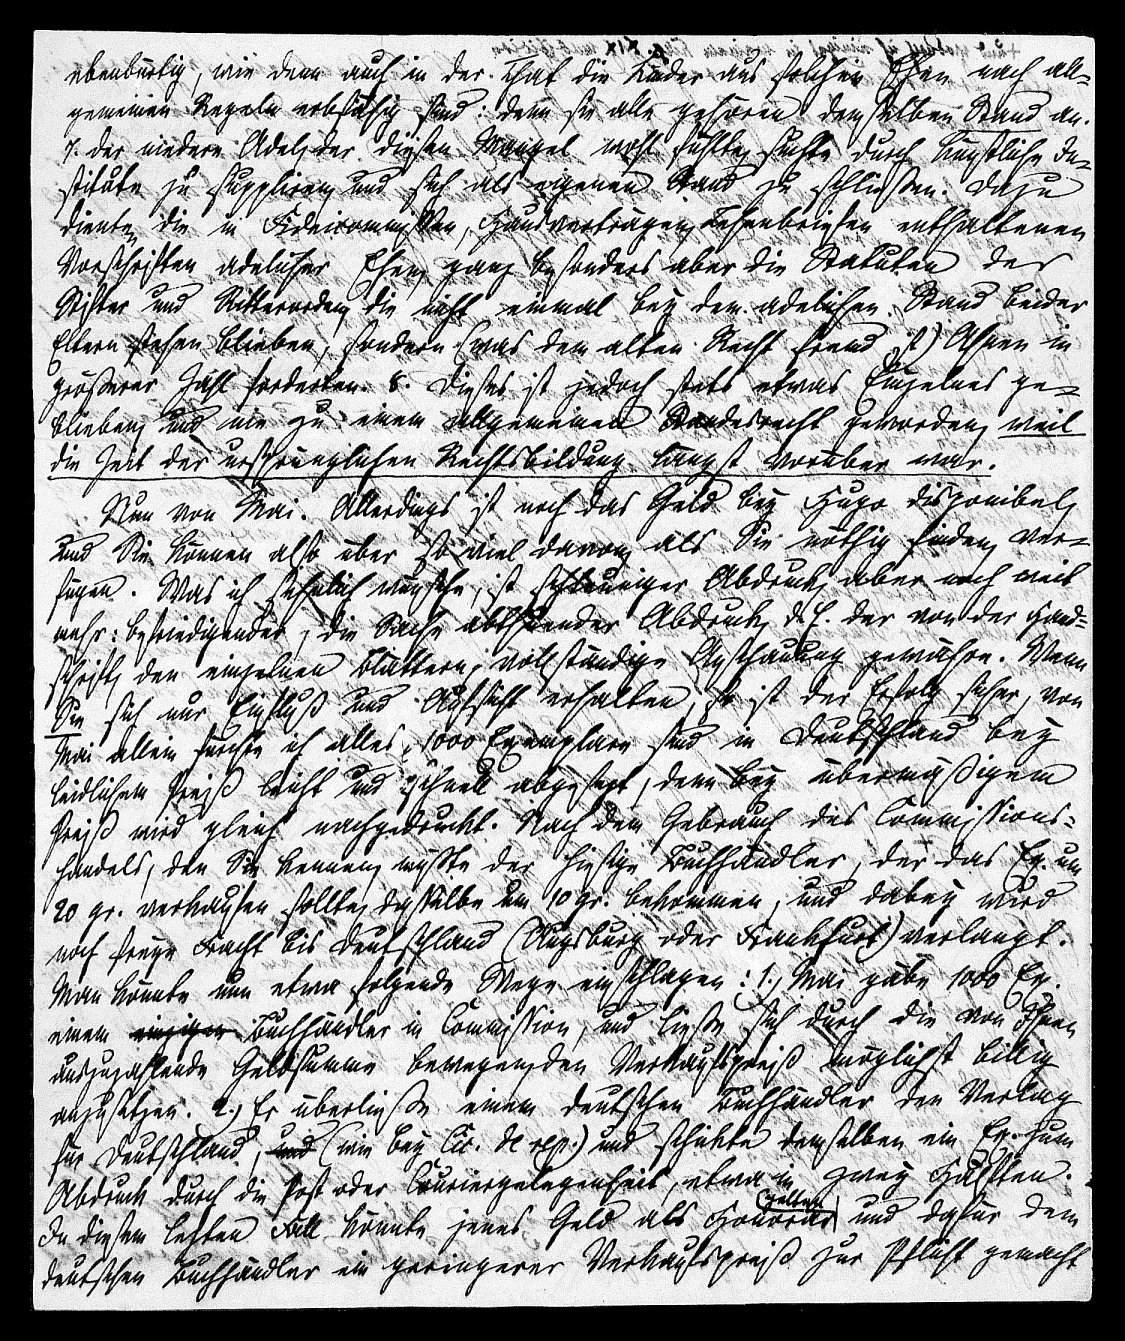 ebenbürtig, wie denn auch in der That die Kinder aus solchen Ehen nach all-
gemeinen Regeln erbfähig sind: denn sie alle gehören demselben Stand an.
7. der niedere Adel, der diesen Mangel wohl fühlte, suchte durch künstliche In-
stitute zu suppliren, und sich als eigenen Stand zu schließen. Dazu
dienten die in Fideicommissen, Hausverträgen, Lehenbriefen enthaltenen
Vorschriften adelicher Ehen, ganz besonders aber die Statuten der
Stifter und Ritterorden, die nicht einmal bey dem adelichen Stand beider
Eltern stehen blieben, sondern (was dem alten Recht fremd ist) Ahnen in
größerer Zahl forderten. 8. Dieses ist jedoch stets etwas Einzelnes ge-
blieben, und nie zu einem allgemeinen Standesrecht geworden, weil
die Zeit der ursprünglichen Rechtsbildung längst vorüber war.
Nun von Mai. Allerdings ist noch das Geld bey Hugo disponibel,
und Sie können also über so viel davon, als Sie nöthig finden, ver-
fügen. Was ich sehnlich wünsche, ist schleuniger Abdruck, aber noch weit
mehr: befriedigender, die Sache abthuender Abdruck, d. h. der von der Hand-
schrift, den einzelnen Blättern, vollständige Anschauung gewähre. Wenn
Sie sich nur Einfluß und Aufsicht erhalten, so ist der Erfolg sicher, von
Mai allein fürchte ich alles. 1000 Exemplare sind in Deutschland bey
leidlichem Preiß leicht und schnell abgesetzt, denn bey übermäßigem
Preiß wird gleich nachgedruckt. Nach dem Gebrauch des Commissions-
handels, den Sie kennen, müßte der hiesige Buchhändler, der das Ex. um
20 gr. verkaufen sollte, dasselbe um 10 gr. bekommen, und dabey wird
noch freye Fracht bis Deutschland (Augsburg oder Frankfurt) verlangt.
Man könnte nun etwa folgende Wege einschlagen: 1.) Mai gäbe 1000 Ex.
einem Buchhändler in Commission, und ließe sich durch die von Ihnen
auszuzahlende Geldsumme bewegen, den Verkaufspreiß möglichst billig
anzusetzen. 2.) Er überließe einem deutschen Buchhändler den Verlag
für Deutschland, (wie bey Cic. de rep.) und schickte demselben ein Ex. zum
Abdruck durch die Post oder Couriergelegenheit, etwa in zwey Hälften.
In diesem letzten Fall könnte jenes Geld als Honorar gelten und dafür dem
deutschen Buchhändler ein geringerer Verkaufspreiß zur Pflicht gemacht